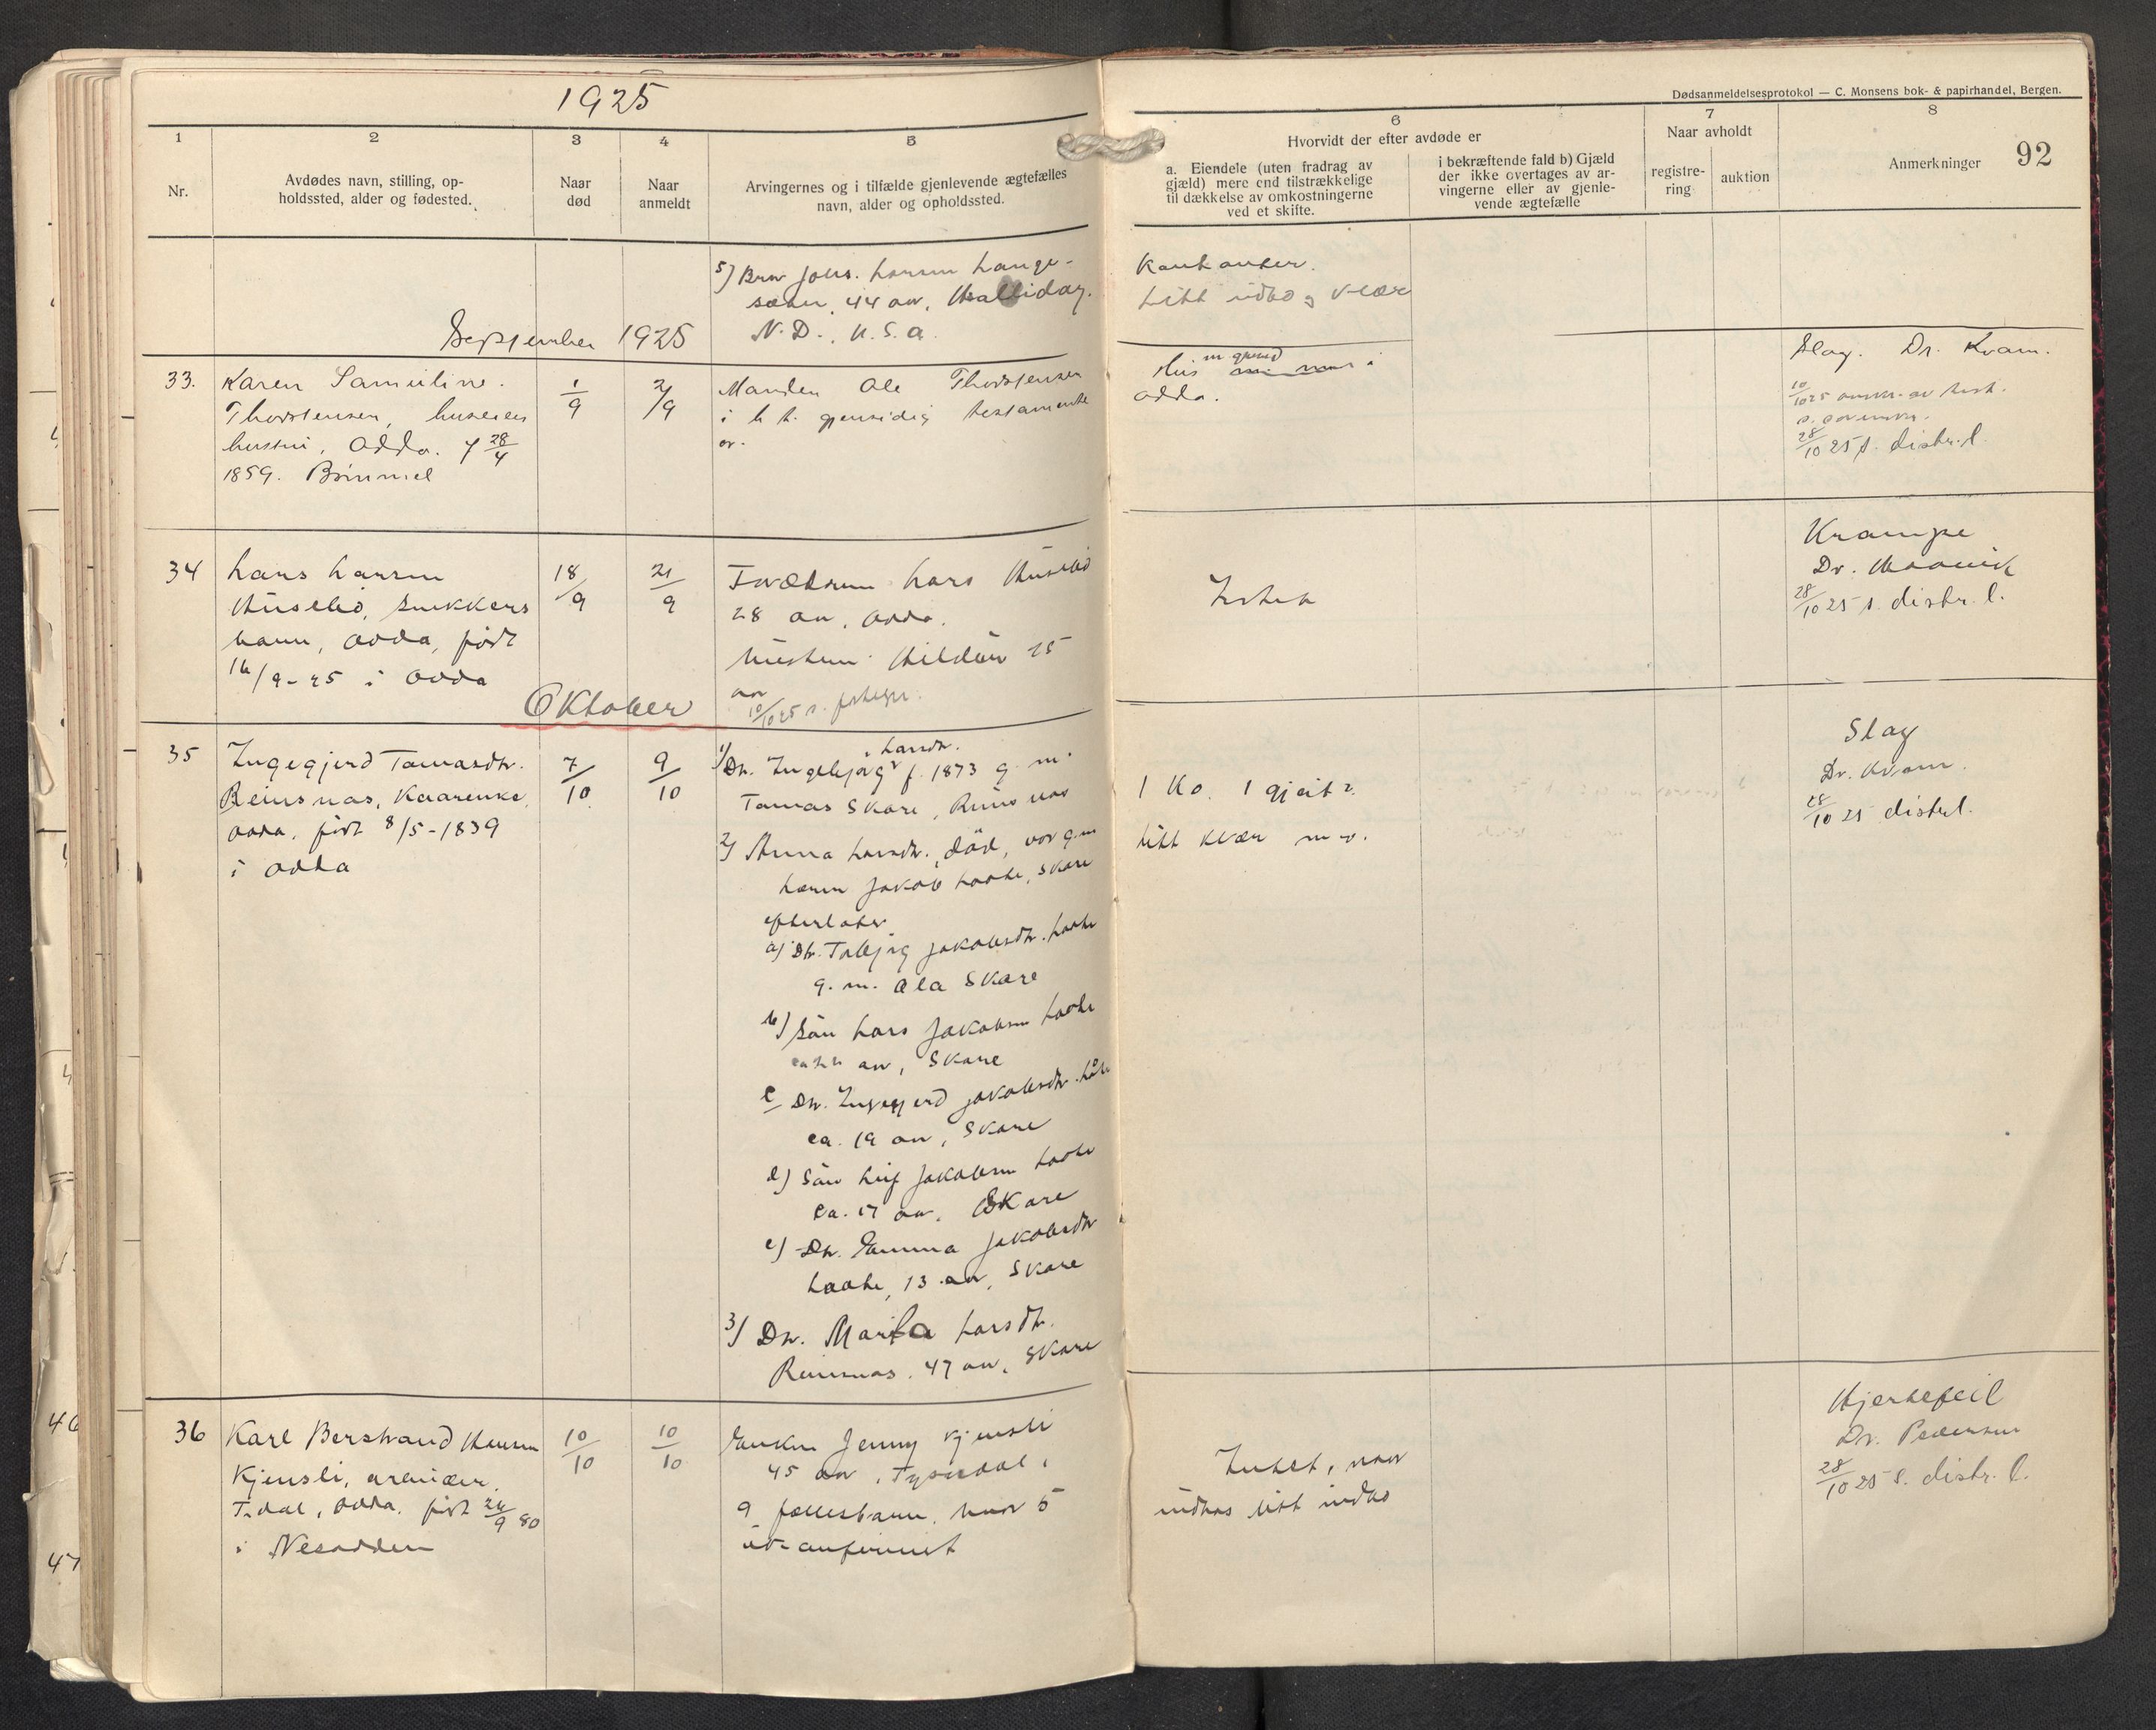 1925
Dødsanmeldelsesprotokol — C. Monsens bok- & papirhandel, Bergen.
92
1
Nr.
2
Avdødes navn, stilling, op-
holdssted, alder og fødested.
3
Naar
død
4
Naar
anmeldt
5
Arvingernes og i tilfælde gjenlevende ægtefælles
navn, alder og opholdssted.
6
Hvorvidt der efter avdøde er
a. Eiendele (uten fradrag av
gjæld) mere end tilstrækkelige
til dækkelse av omkostningerne
ved et skifte.
i bekræftende fald b) Gjæld
der ikke overtages av ar-
vingerne eller av gjenle-
vende ægtefælle
7
Naar avholdt
registre-
ring
auktion
8
Anmerkninger
5) Bror Johs. Larsen Lange-
44 aar, Halliday.
N. D., U. S. A.
Kontanter.
Litt indbo og klær
September 1925
33.
Karen Samuline
Thorstensen, huseiers
hustru, Odda. f 28/4
1859. Bømmel
1/9
2/9
Manden Ole Thorstensen
i h. t. gjensidig testamente
Hus m grund i
Odda.
Slag. Dr. Kvam.
28/10 25 s. distr. l.
34
Lars Larsen
Huseby, snekkers
barn, Odda, født
16/9-25 i Odda
18/9
21/9
Forældrene Lars
28 aar, Odda.
hustru 25
aar
10/10 25
Intet
Krampe
Dr.
28/10 25 s. distr. l.
Oktober
35
Ingegjerd Tomasdtr.
Reinsnos, Kaarenke,
Odda, født 8/5-1839
i Odda
7/10
9/10
1/ Dtr. Ingebjørg Larsdtr. f. 1873 g. m.
Tomas Skare, Reinsnos
2/ Anna Larsdtr., død, var g. m
Jakob Laate, Skare
efterlater
a) Dtr. Torbjørg Jakobsdtr. Laate
g. m. Ola Skare
b) Søn Lars Jakobsen Laate
aar, Skare
c Dtr. Ingegjerd Jakobsdtr. Låte
ca. 19 aar, Skare
d) Søn Leif Jakobsen Laate
ca. 17 aar, Skare
e) Dtr. Emma Jakobsdtr
Laate, 13 aar, Skare
3/ Dtr. Marta Larsdtr.
Reinsnos, 47 aar, Skare
1 ko, 1 gjeit
litt klær m. v.
Slag
Dr. Kvam.
28/10 25 distr. l.
36
Karl Berstrand Hansen
Kjensli, arbeider,
T.dal, Odda, født 26/9 80
i Nesodden
10/10
10/10
Enken Jenny Kjensli
45 aar, Tyssedal,
9 fællesbarn, hvor 5
Intet, naar
undtas litt indbo
Hjertefeil
Dr. Pedersen
28/10 25 s. distr. l.